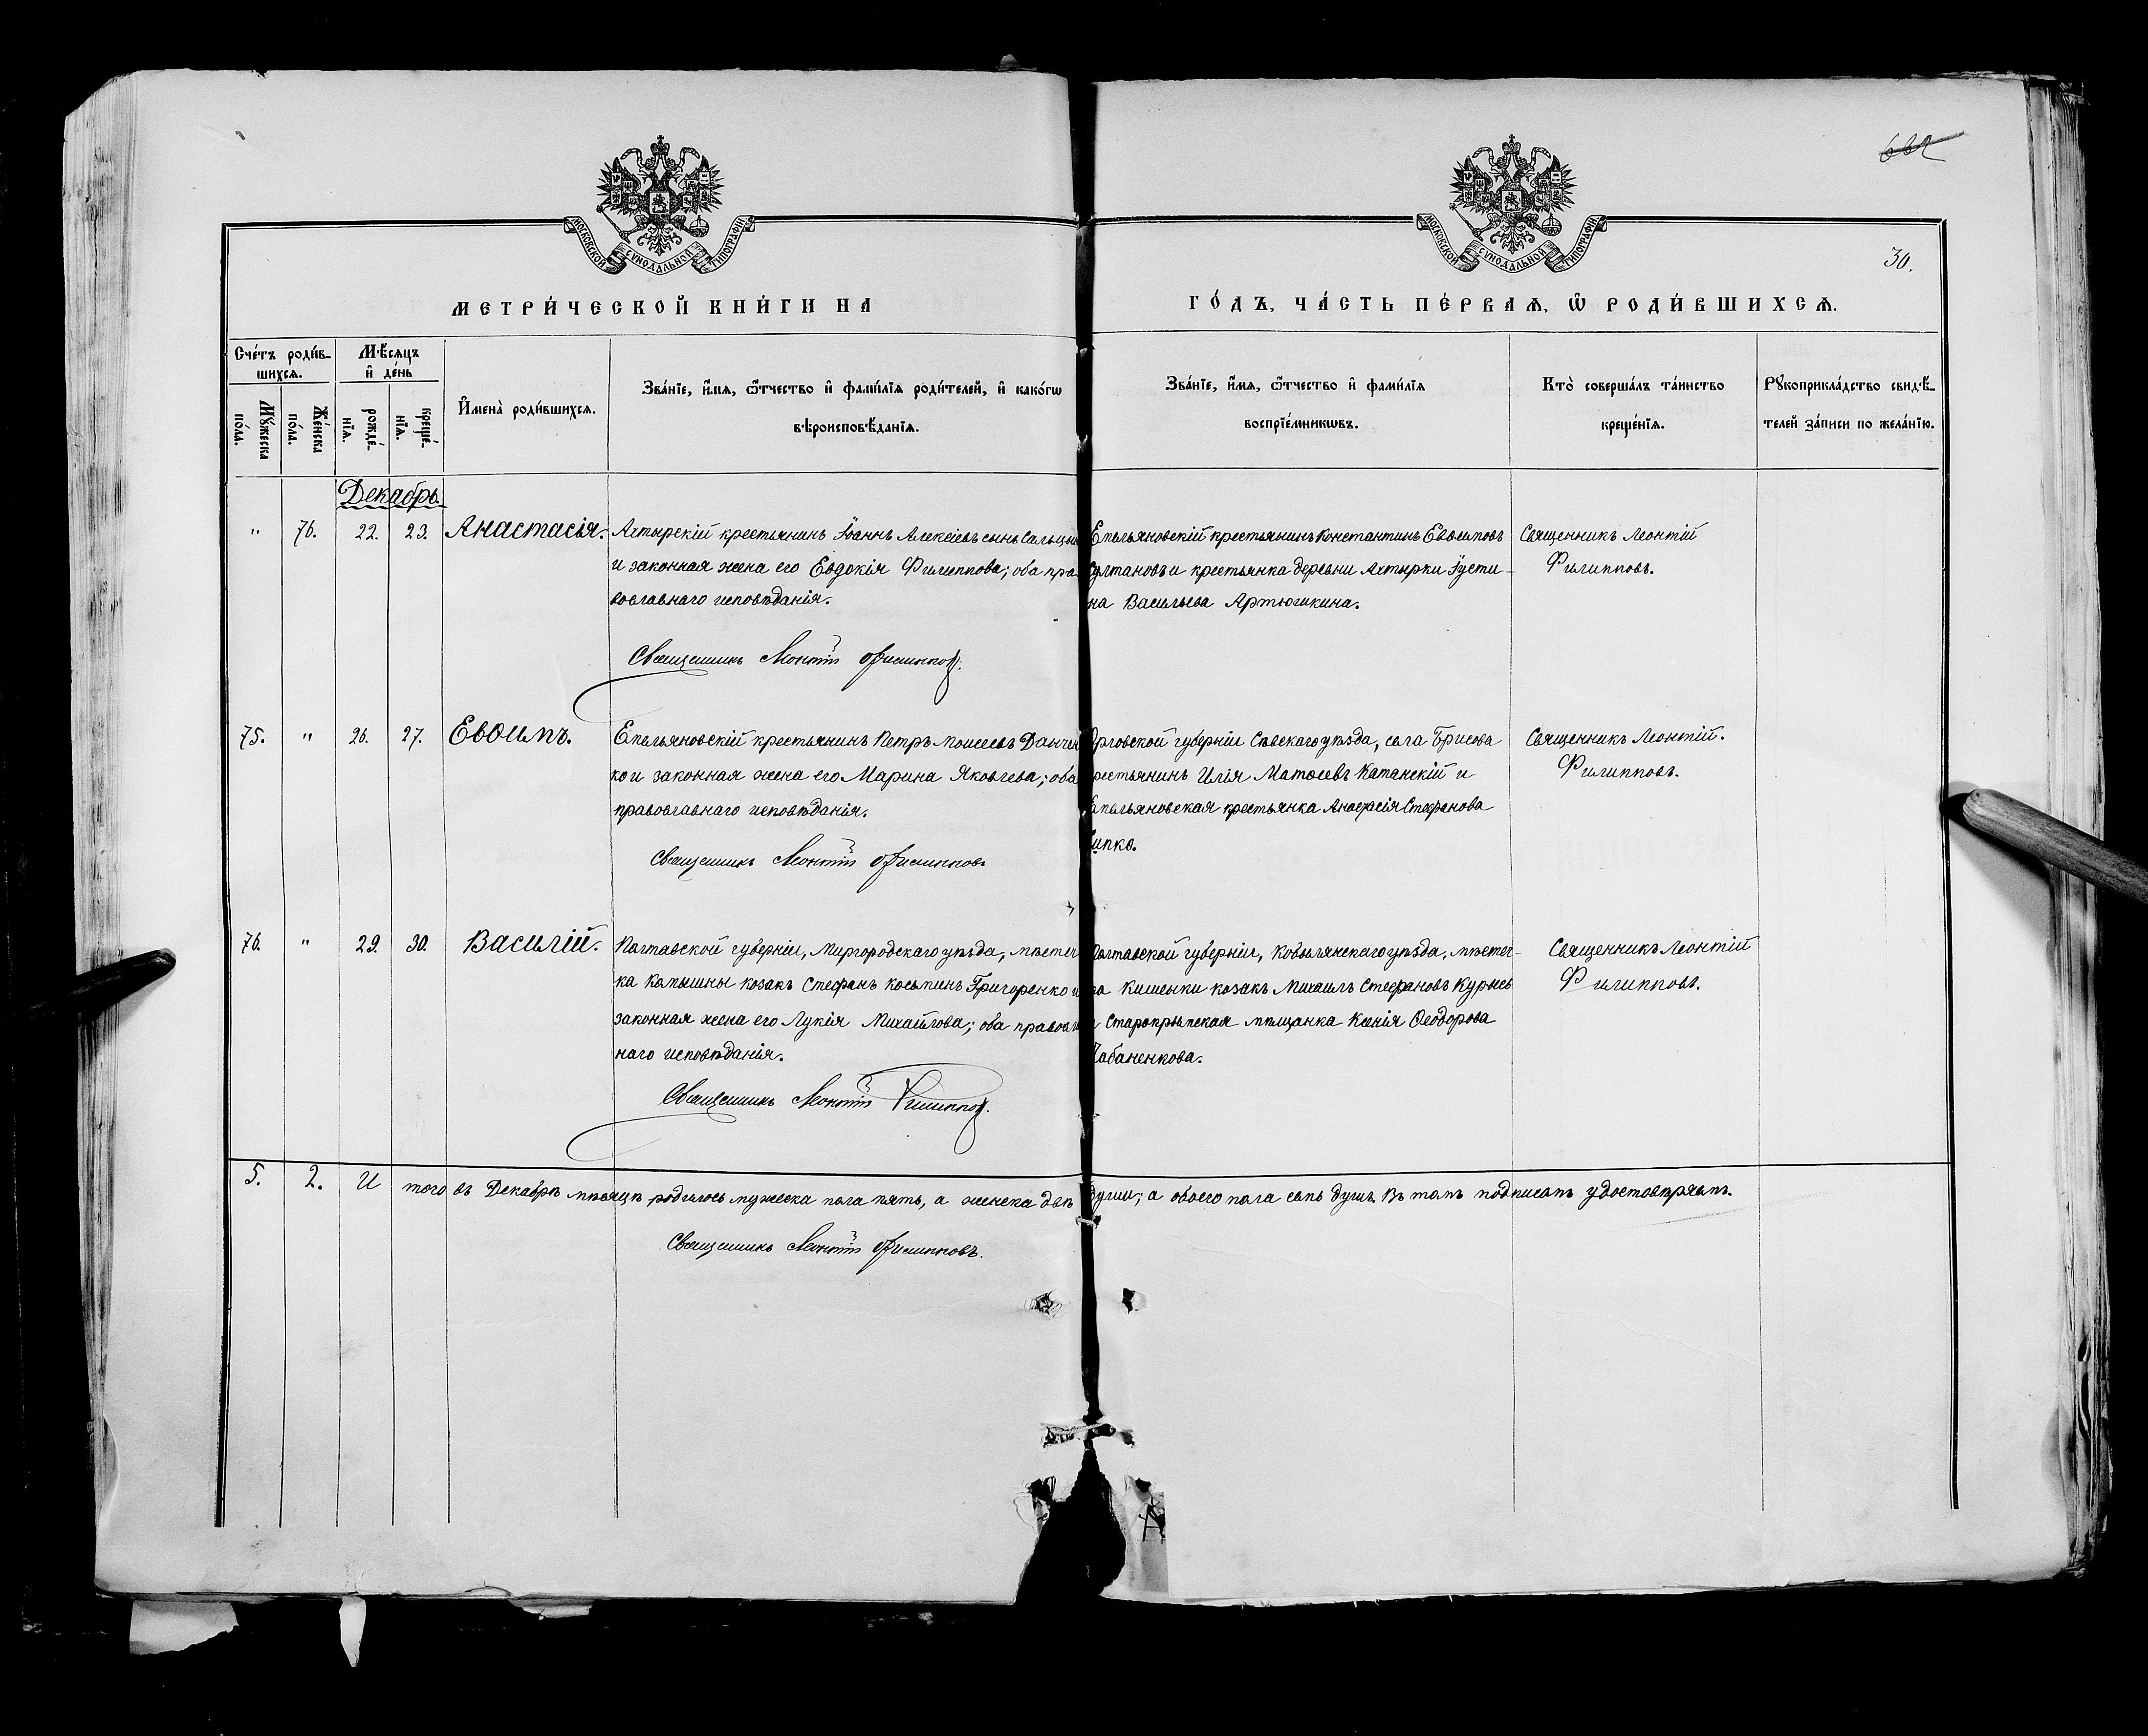 682
МОСКОВСКОЙ СѴНОДАЛЬНОЙ ТИПОГРАФІИ
МОСКОВСКОЙ СѴНОДАЛЬНОЙ ТИПОГРАФІИ
30.
МЕТРИ́ЧЕСКОЙ КНИ́ГИ НА
ГО́ДЪ, ЧА́СТЬ ПЕ́РВАѦ, Ѿ РОДИ́ВШИХСѦ.
Сче́тъ роди́в-
шихсѧ.
Мꙋ́жеска
по́ла.
Же́нска
по́ла.
Мѣ́сѧцъ
и҆ де́нь
рожде́-
нїѧ.
креще́-
нїѧ.
И҆мена̀ роди́вшихсѧ.
Зва́нїе, и҆́мѧ, ѻ҆́тчество и҆ фами́лїѧ роди́телей, и҆ како́гѡ
вѣроисповѣ́данїѧ.
Зва́нїе, и҆́мѧ, ѻ҆́тчество и҆ фами́лїѧ
воспрїе́мникѡвъ.
Кто̀ соверша́лъ та́инство
креще́нїѧ.
Рꙋкоприкла́дство свидѣ́-
телей за́писи по жела́нїю.
Декабрь.
" 76. 22. 23. Анастасія. Ахтырскій крестьянинъ Іоаннъ Алексіевъ сынъ Сальцы
и законная жена его Евдокія Филиппова; оба пра-
вославнаго исповѣданія.
Священникъ Леонтій Филипповъ.
Емельяновскій крестьянинъ Константинъ Евѳимовъ
Султановъ и крестьянка деревни Ахтырки Іусти-
на Васильева Артюшкина.
Священникъ Леонтій
Филипповъ.
75. " 26. 27. Евѳимъ. Емельяновскій крестьянинъ Петръ Моисеевъ Данчен
ко и законная жена его Марина Яковлева; оба
православнаго исповѣданія.
Священникъ Леонтій Филипповъ
Орловской губерніи Сѣвскаго уѣзда, села Брисова
крестьянинъ Илія Матѳеевъ Катанскій и
Емельяновская крестьянка Анастасія Стефанова
ипко.
Священникъ Леонтій.
Филипповъ.
76. " 29. 30. Василій. Полтавской губерніи, Миргородскаго уѣзда, мѣстеч
ка Комышны козакъ Стефанъ Косьминъ Григоренко и
законная жена его Лукія Михайлова; оба правосл
наго исповѣданія.
Священникъ Леонтій Филипповъ.
Полтавской губерніи, Кобылянскаго уѣзда, мѣстеч-
ка Кишенки козакъ Михаилъ Стефановъ Курысь
и Старокрымская мѣщанка Ксенія Ѳеодорова
Чабаненкова.
Священникъ Леонтій
Филипповъ.
5. 2. Итого въ Декабрѣ мѣсяцѣ родилось мужеска пола пять, а женска двѣ души; а обоего пола семь душъ. Въ томъ подписомъ удостовѣряемъ.
Священникъ Леонтій Филипповъ.